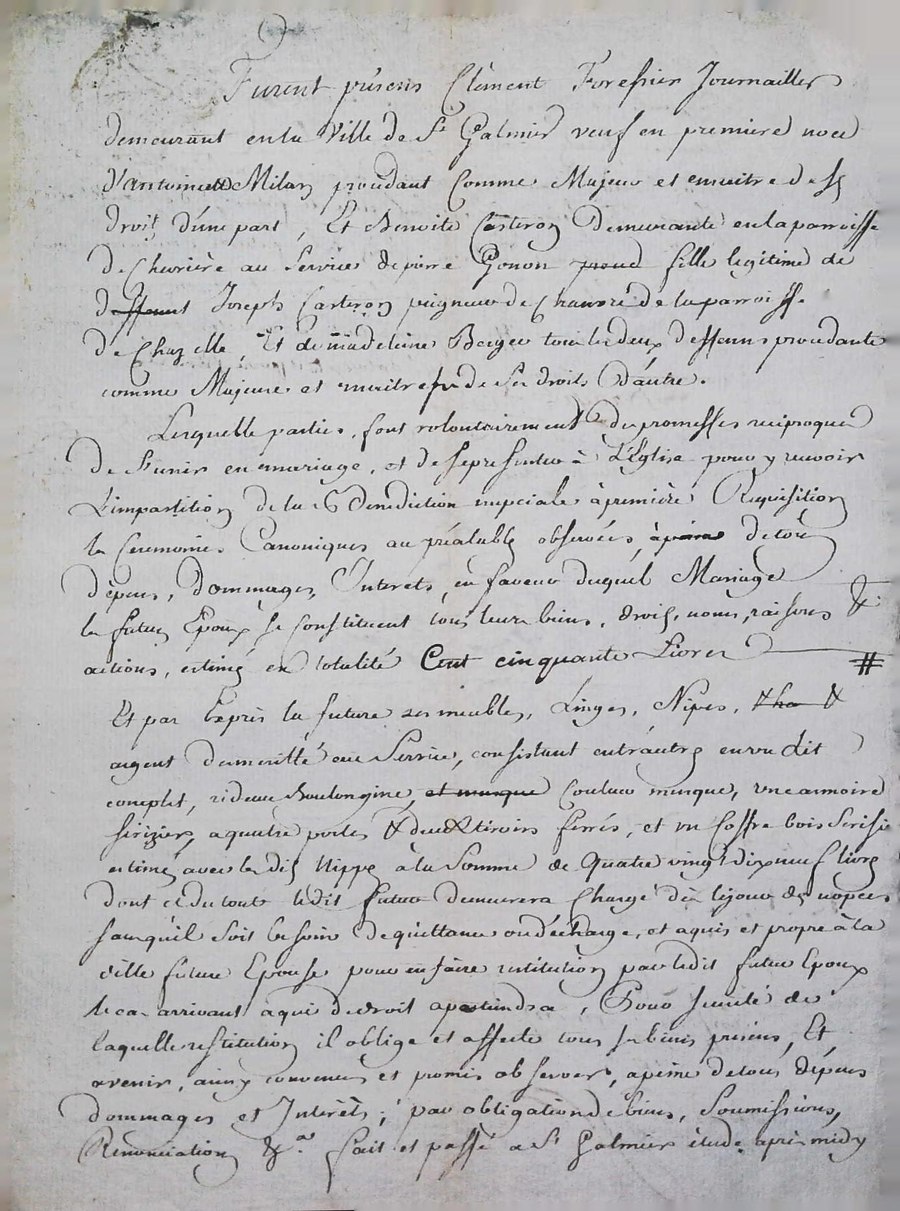 Furent présens Clément Foressier Journaillier
demeurant en la Ville de St Galmier veuf en premiere noce
d'antoinette Milan procédant Comme Majeur et maitre de ses
droits d'une part, Et Benoite Casteron Demeurante en la parroisse
de Chevrière au Service de pierre Gonon fille legitime de
deffunt Joseph Casteron peigneur de Chanvre de la parroisse
de Chazelle, Et de madeleine Berger tous les deux deffunts procédante
comme Majeure et maitresse de Ses droits D'autre.
Lesquelle parties, font volontairement des promesses reciproques
de S'unir en mariage, et de se presenter à L'Eglise pour y recevoir
L'impartition de la Benediction à première Requisition
les Ceremonies Canoniques au préalable observées, à peine de tous
dépens, Dommages, Interets, en faveur duquel Mariage
les futurs Epoux se Constituent tous leurs biens, droits, noms, raisons &
actions, estimés en totalité Cent cinquante Livres #
Et par Exprès la future ses meubles, Linges, Nipes, &
argent au Service, consistant entr'autres en un dit
complet, rideau Boulongine, et manque Couleur minque, une armoire
serizier, a quatre portes & deux tiroirs ferrés, et un Coffre bois Serisie
estimés avec les dits Nippes à la Somme de Quatre vingt dix neuf livres
dont et du tout ledit futur demeurera Chargé dès le jour des nopces
sans qu'il soit besoin de quittance ou décharge, et aquis et propre à la
ditte future Epouse pour en faire restitution par ledit futur Epoux
le cas arrivant à qui de droit apartiendra, Pour sureté de
laquelle restitution il oblige et affecte tous ses biens présens, Et
avenir, ainsy convenus et promis observer, a peine de tous dépens
dommages et Interèts; par obligation de biens, Soumissions,
Renonciation &a. fait et passé a St Galmier étude après midy